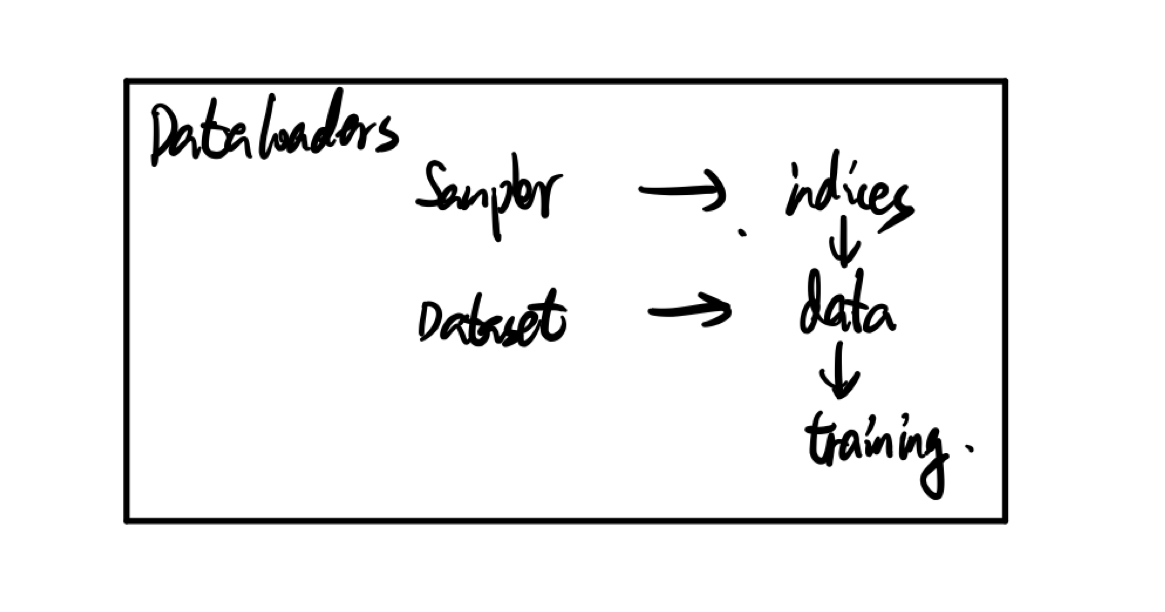 Dataloaders
Sampler → indices
↓
Dataset → data
↓
training.